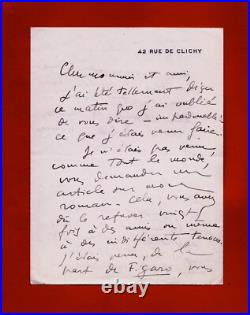 42 RUE DE CLICHY
Cher monsieur et ami,
J'ai été tellement
ce matin que j'ai oublié
de vous dire –
ce que j'étais venu faire.
Je n'étais pas venu
comme tout le monde,
vous demander un
article sur mon
roman. Cela, vous avez
dû le refuser vingt
fois à des amis ou même
à des indifférents
J'étais venu, de la
part du Figaro, vous
© thunting.com